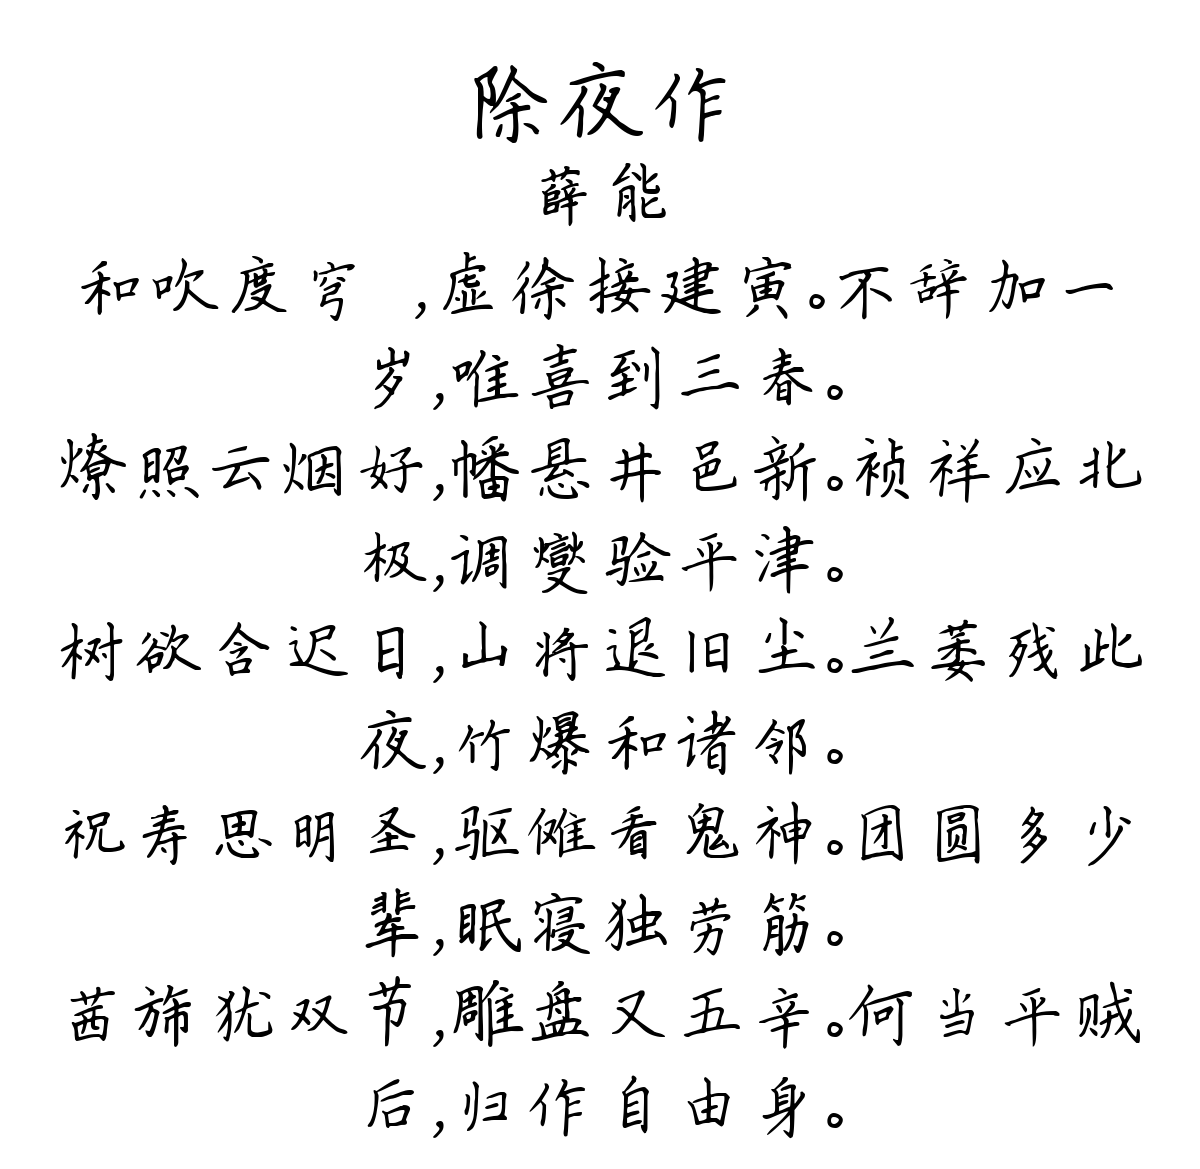 除夜作
薛能
和吹度穹 ,虚徐接建寅。不辞加一
岁,唯喜到三春。
燎照云烟好,幡悬井邑新。祯祥应北
极,调燮验平津。
树欲含迟日,山将退旧尘。兰萎残此
夜,竹爆和诸邻。
祝寿思明圣,驱傩看鬼神。团圆多少
辈,眠寝独劳筋。
茜旆犹双节,雕盘又五辛。何当平贼
后,归作自由身。